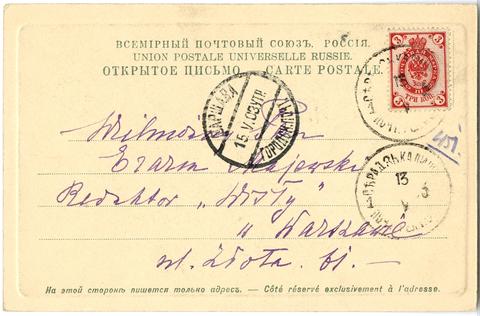 ВСЕМІРНЫЙ ПОЧТОВЫЙ СОЮЗЪ. РОССІЯ.
UNION POSTALE UNIVERSELLE RUSSIE.
ОТКРЫТОЕ ПИСЬМО. — CARTE POSTALE.
3 3
ТРИ КОП.
3 3
ВАРШАВА
15 V.03 УТР
ГОРОДСК.
451.
Wilmożny Pan
Erazm Majewski
Redaktor „Wisły"
w Warszawie
ul. Złota. 61.-
СѢРАДЗЬ КАЛИШ
13
На этой сторонѣ пишется только адресъ. — Côté réservé exclusivement à l'adresse.